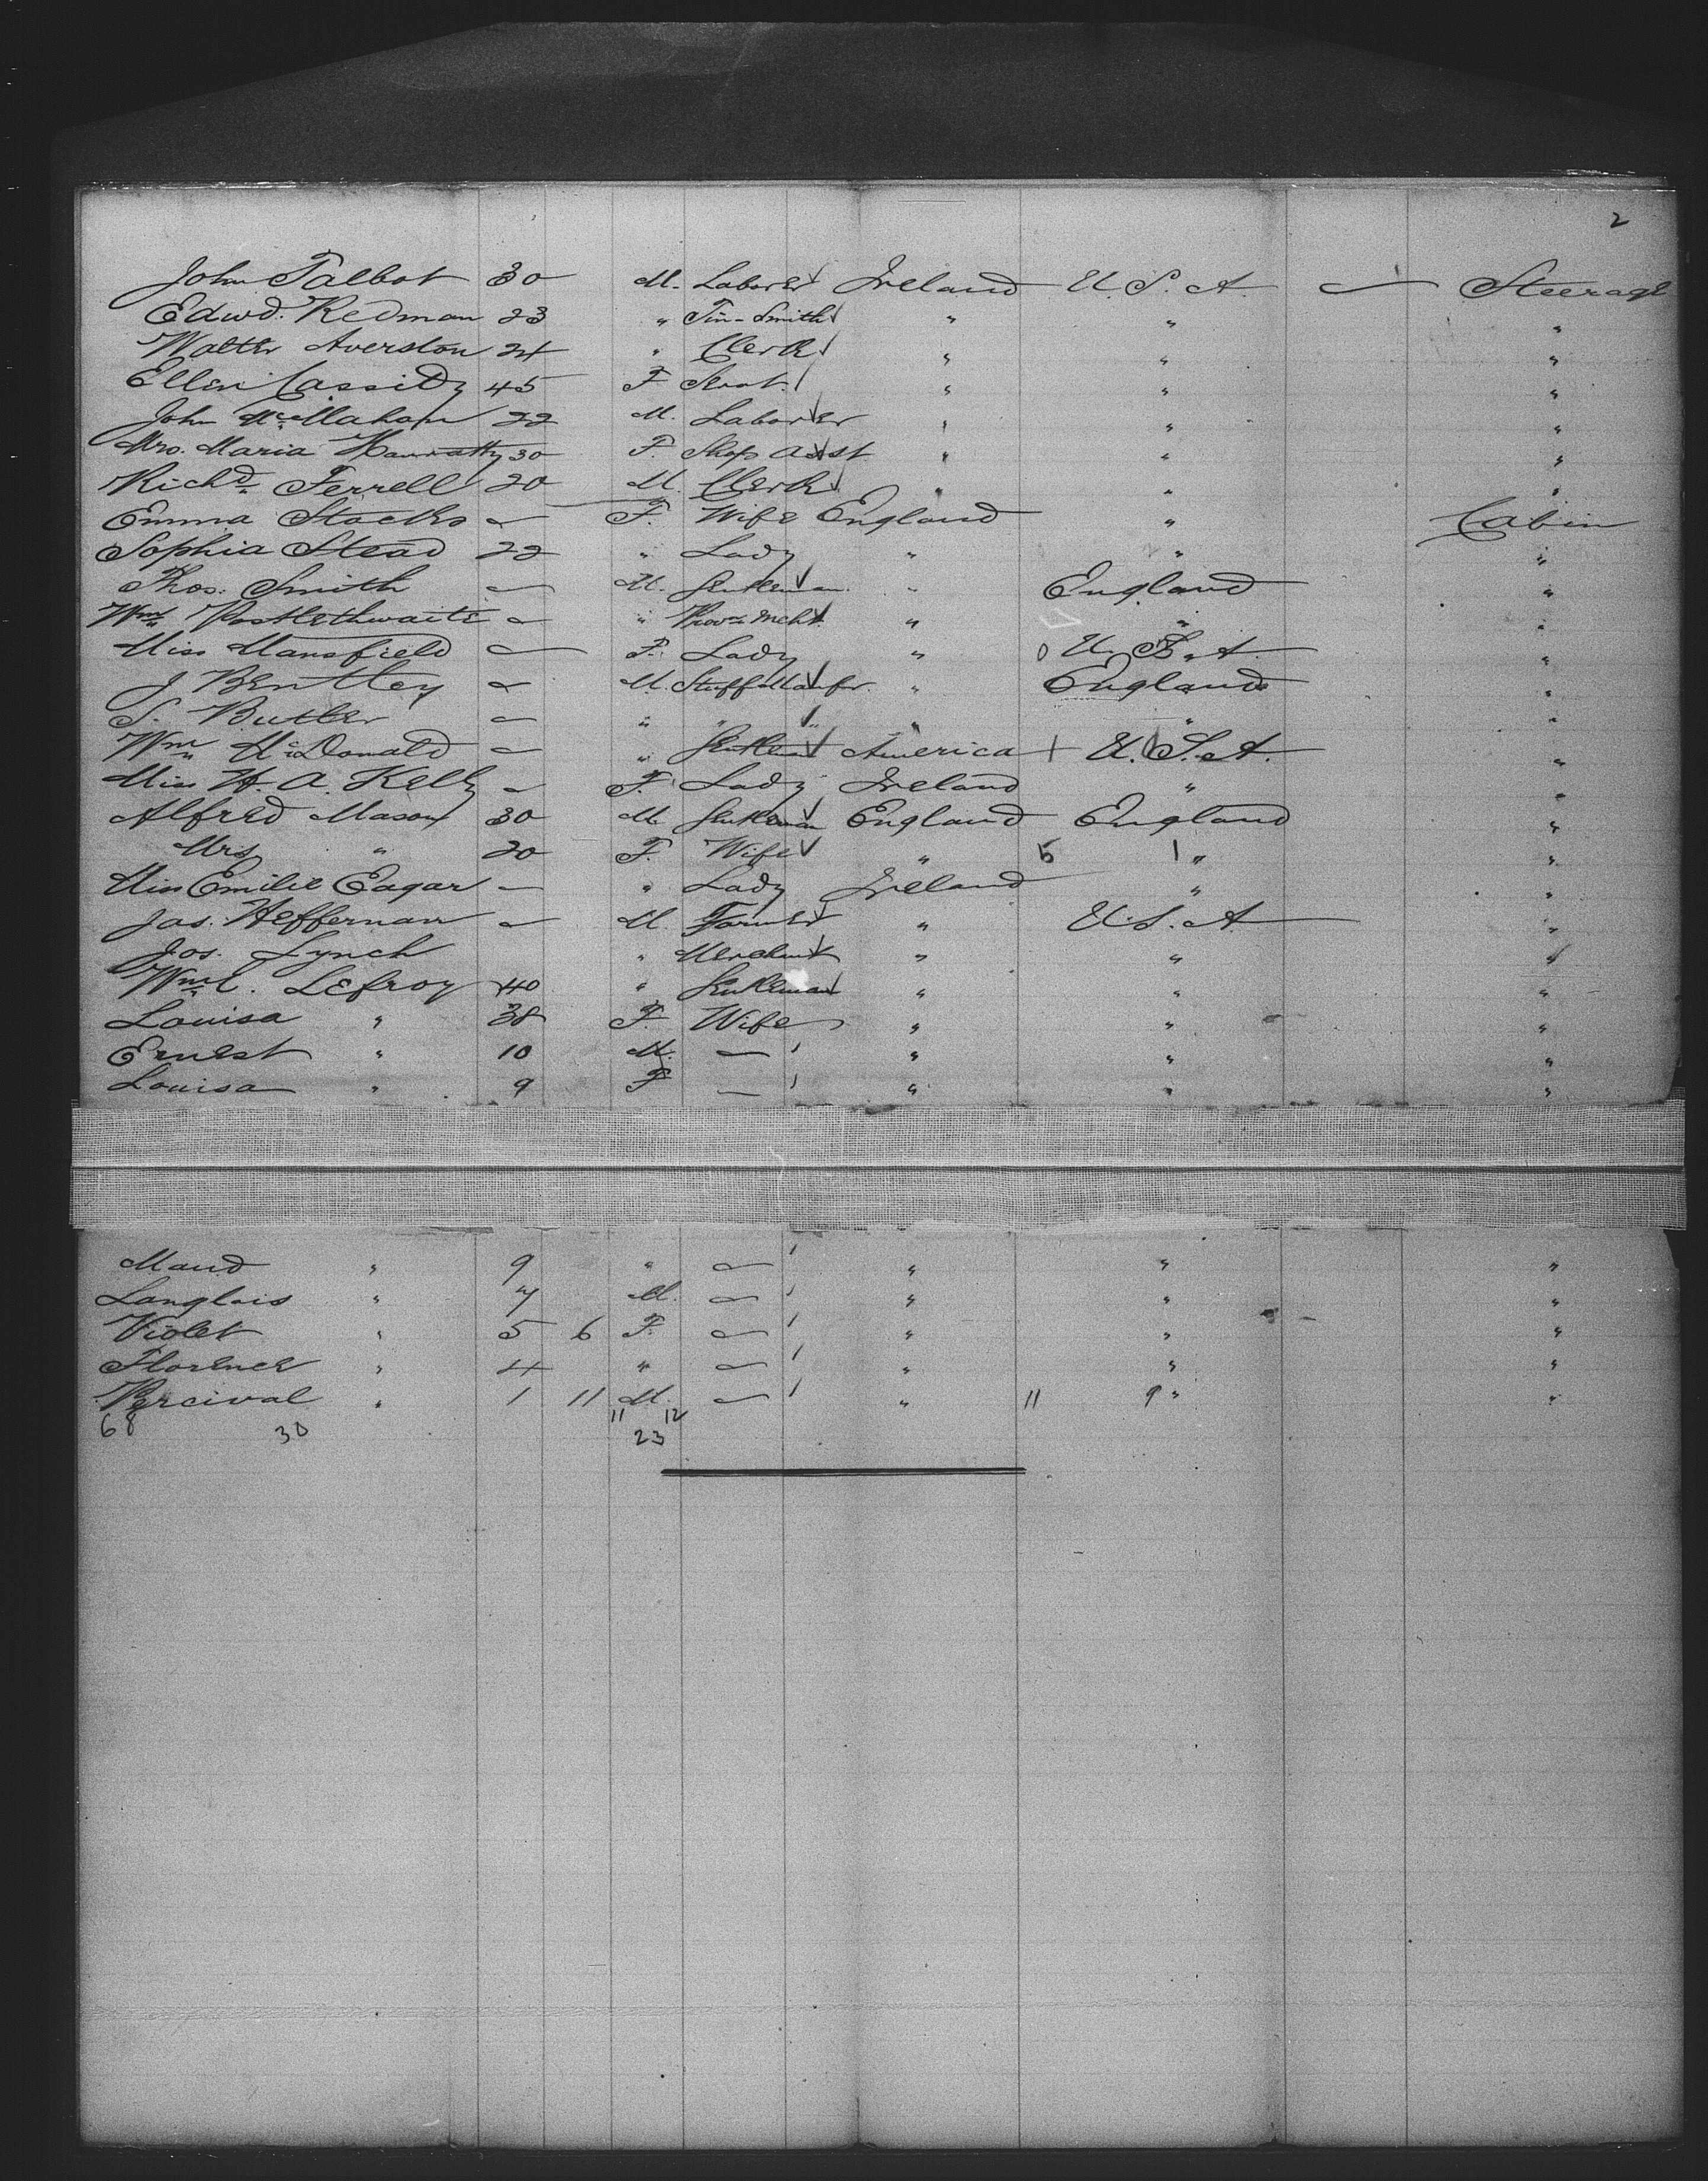 2
John Talbot 30 M. Laborer Ireland U.S.A. — Steerage
Edwd. Redman 23 " Tin-Smith " " "
Walter Averston 24 " Clerk " " "
Ellen Cassidy 45 F Servt. " " "
John McMahon 22 M. Laborer " " "
Mrs. Maria Hanratty 30 F. Shop Asst " " "
Richd. Ferrell 20 M. Clerk " " "
Emma Stocks — F. Wife England " Cabin
Sophia Stead 22 " Lady " " "
Thos. Smith — M. Gentleman " England "
Wm. Postlethwaite — " Provn. Mcht. " " "
Miss Mansfield — F. Lady " 0 U.S.A. "
J Bentley — M. Stuff Manfr. " England "
S. Butler — " " " " " "
Wm McDonald — " Gentleman America 1 U.S.A. "
Miss H. A. Kelly — F. Lady Ireland " "
Alfred Mason 30 M. Gentleman England England "
Mrs " 20 F. Wife " 5 1 " "
Miss Emilie Eagar — " Lady Ireland " "
Jas. Heffernan — M. Farmer " U.S.A. "
Jos. Lynch " Merchant " " "
Wm L. Lefroy 40 " Gentleman " " "
Louisa " 38 F. Wife " " "
Ernest " 10 M. — " " "
Louisa " 9 F — " " "
Maud " 9 " — " " "
Langlois " 7 M. — " " "
Violet " 5 6 F. — " " "
Florence " 4 " — " " "
Percival " 1 11 M. — " 11 9 " "
68 30 11 12
23